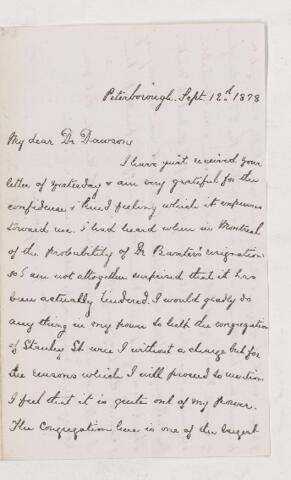 Peterborough Sept. 12d 1878
My dear Dr Dawson
I have just received your
letter of yesterday & am very grateful for the
confidence & kind feeling which it expresses
toward me. I had heard when in Montreal
of the probability of Dr Baxter's resignation
so I am not altogether surprised that it has
been actually tendered. I would gladly do
any thing in my power to help the congregation
of Stanley St were I without a charge but for
the reasons which I will proceed to mention
I feel that it is quite out of my power.
The Congregation here is one of the largest